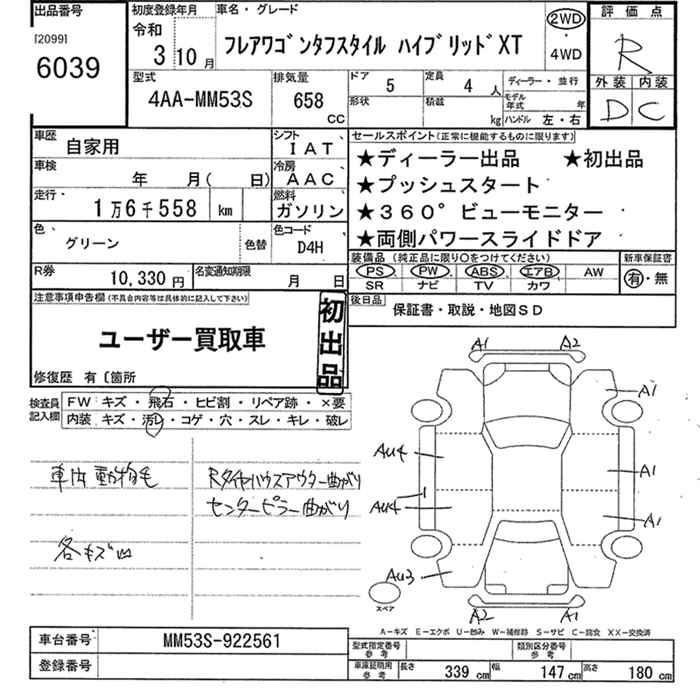 出品番号
[2099]
6039
初度登録年月
令和
3 10月
車名・グレード
フレアワゴンタフスタイル ハイブリッドXT
2WD
・
4WD
評価点
R
外装 内装
D C
型式
4AA-MM53S
排気量
658
CC
ドア
5
定員
4 人
形状
積載
kg
ディーラー・並行
モデル年式 年
ハンドル 左・右
車歴
自家用
シフト
IAT
車検
年 月( 日)
冷房
AAC
走行
1万6千558 km
燃料
ガソリン
色
グリーン
色替
色コード
D4H
R券
10,330円
名変通知期限
月 日
セールスポイント(正常に機能するものに限ります)
★ディーラー出品 ★初出品
★プッシュスタート
★360°ビューモニター
★両側パワースライドドア
装備品(純正品に限り○をつけてください)
PS PW ABS エアB AW
SR ナビ TV カワ
新車保証書
有・無
後日品
保証書・取説・地図SD
注意事項申告欄(不具合内容等は具体的に記入して下さい)
ユーザー買取車
初出品
修復歴 有〔箇所
検査員記入欄
FW キズ・飛石・ヒビ割・リペア跡・×要
内装 キズ・汚レ・コゲ・穴・スレ・キレ・破レ
車内動物毛
各キズ凹
Rタイヤハウスアウター曲がり
センターピラー曲がり
A1 A2
A1
AU4
A1
AU4
A1
AU3
A2 A1
スペア
A-キズ E-エクボ U-凹み W-補修跡 S-サビ C-腐食 XX-交換済
車台番号
MM53S-922561
登録番号
型式指定番号
参考
類別区分番号
参考
車庫証明用
参考
長さ 339 cm 幅 147 cm 高さ 180 cm